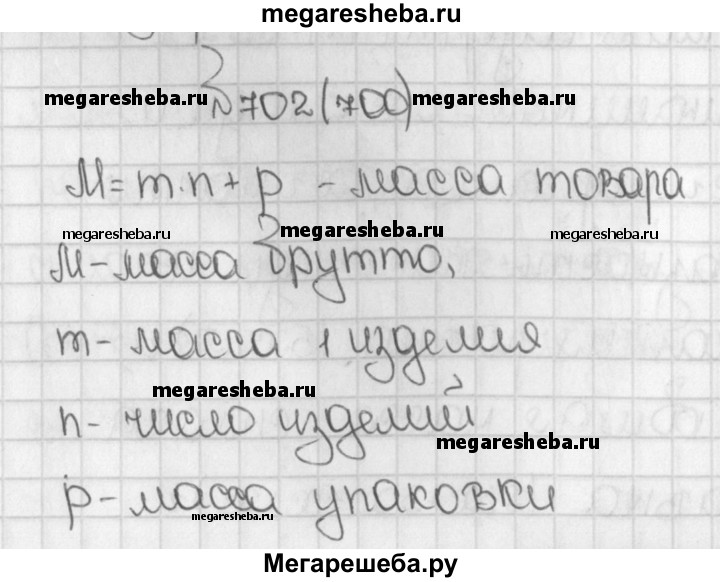 megaresheba.ru
№702(700)
megaresheba.ru megaresheba.ru
M=m·n+p - масса товара
megaresheba.ru megaresheba.ru megaresheba.ru
M-масса брутто,
m- масса 1 изделия
megaresheba.ru
n- число изделий
megaresheba.ru
p-масса упаковки
megaresheba.ru
Мегарешеба.ру